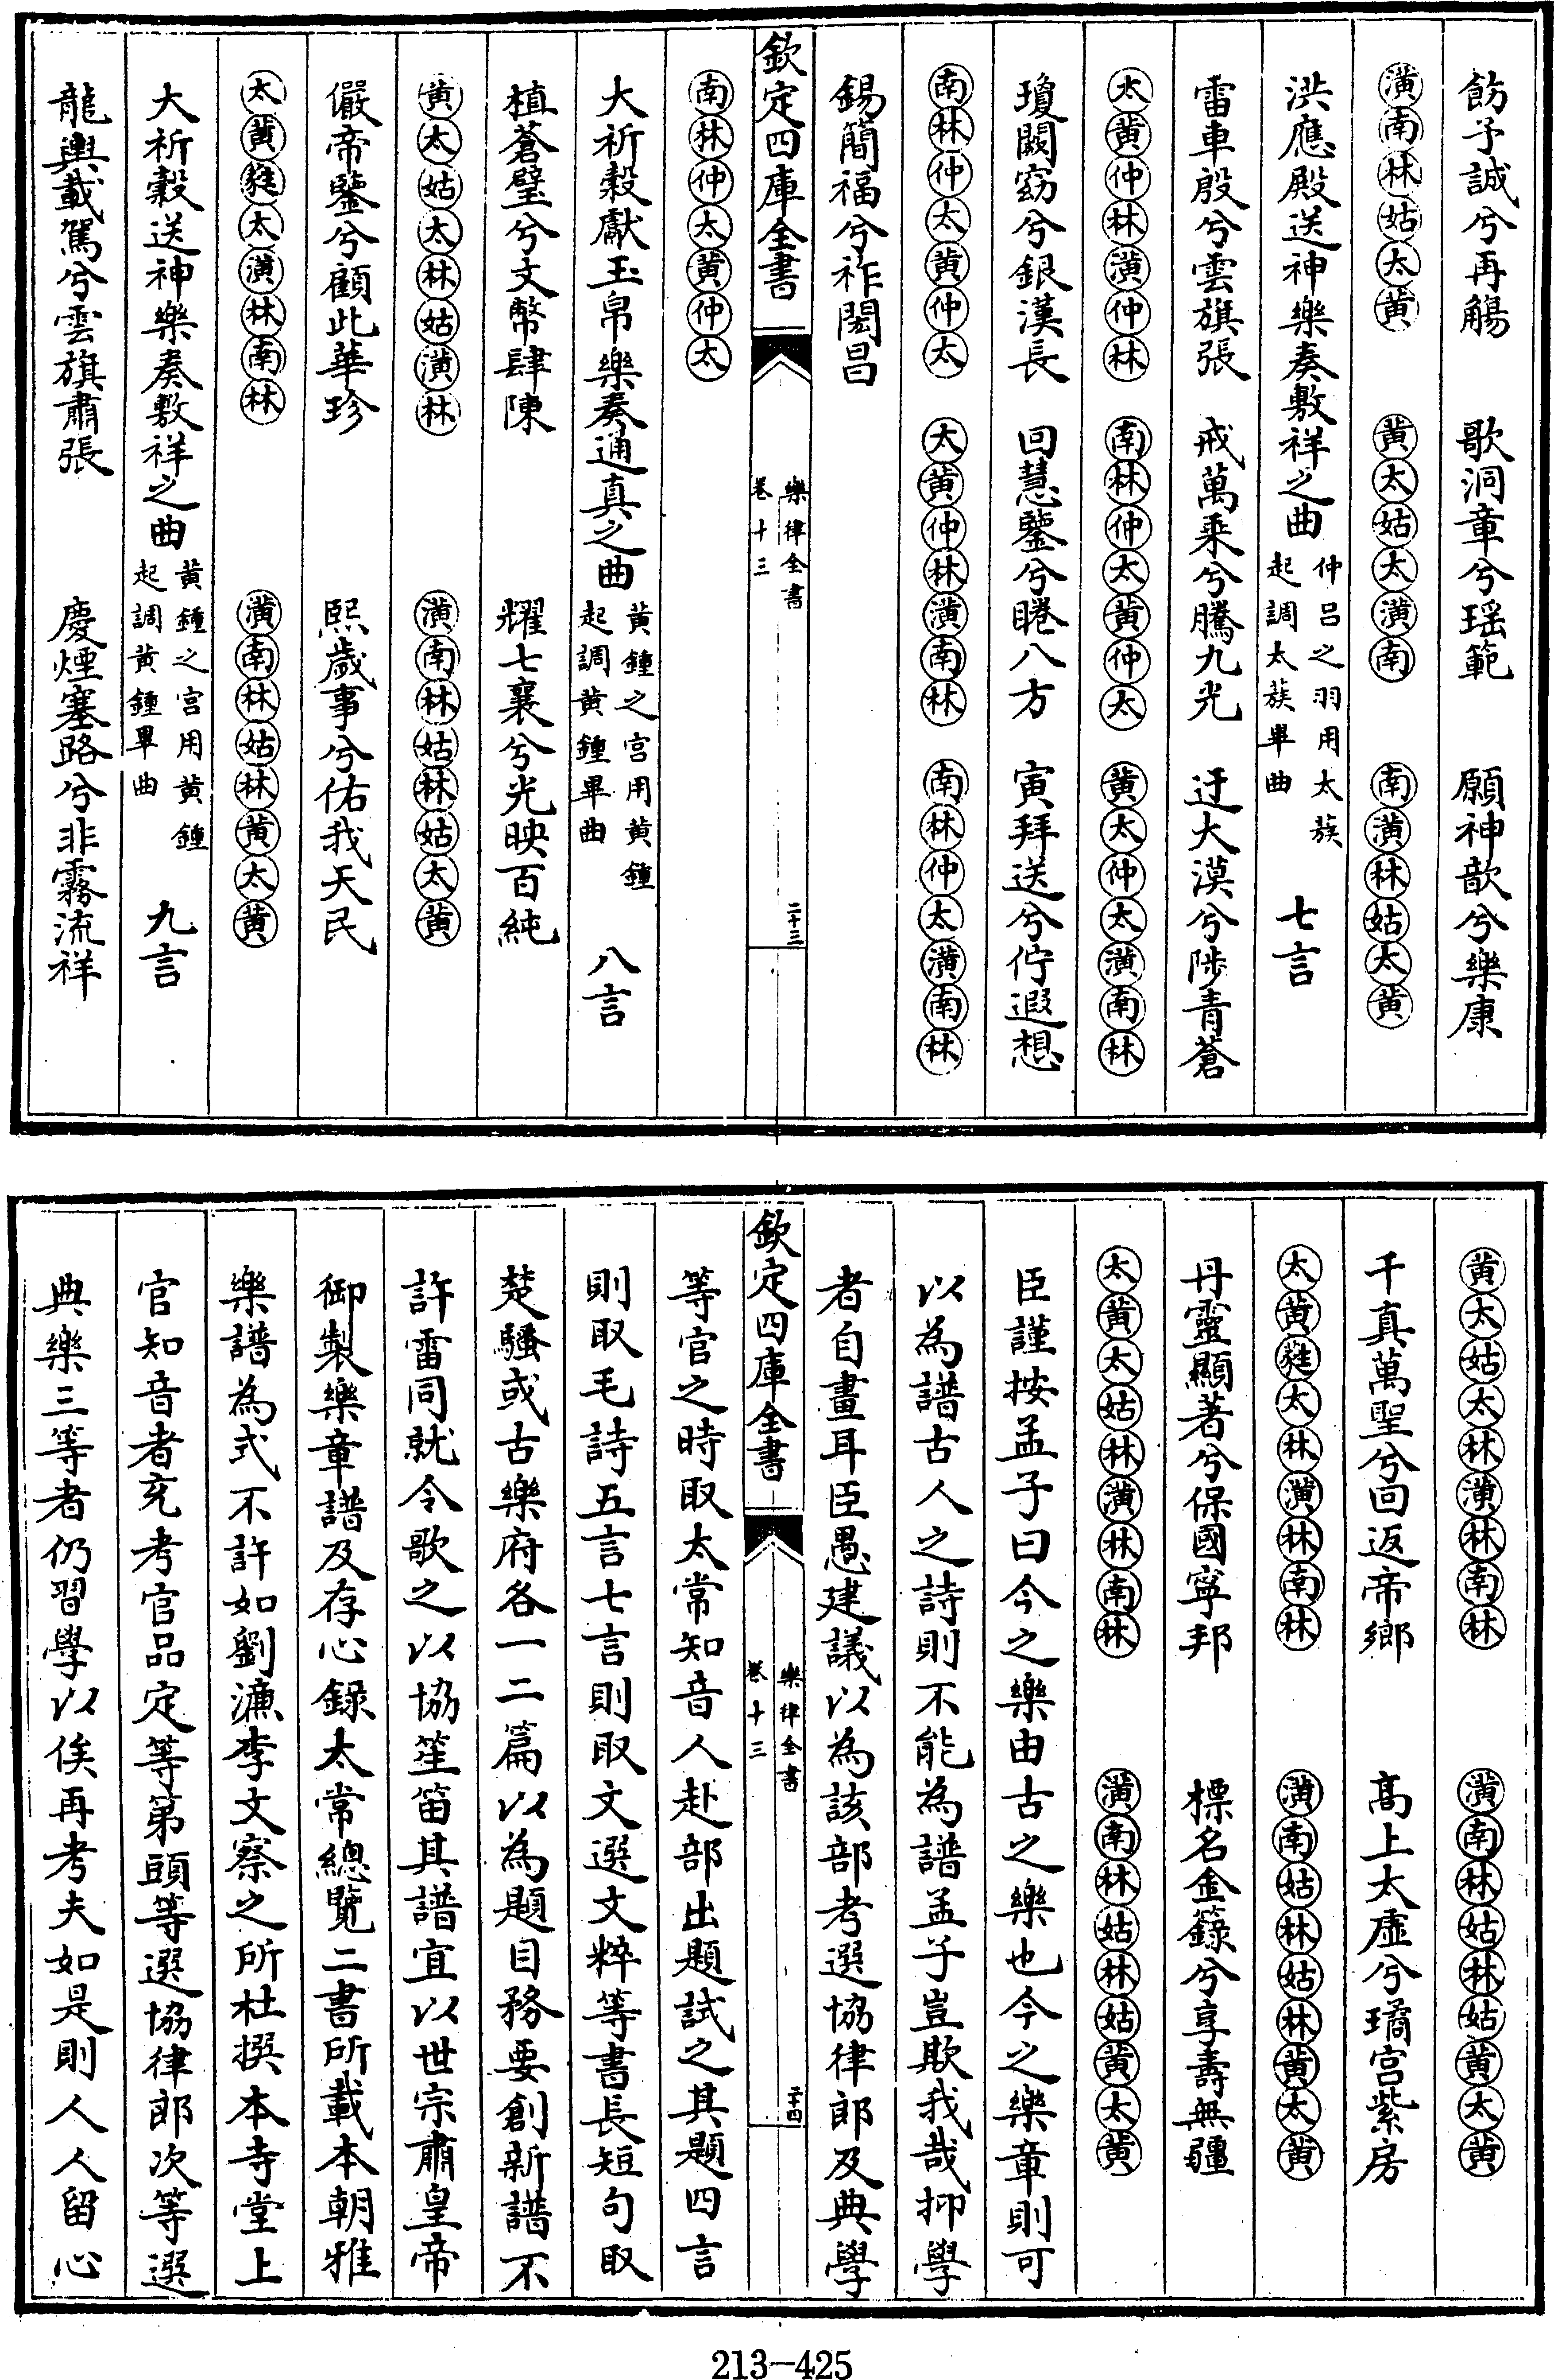 飭予誠兮再觴 歌洞章兮瑶範 願神歆兮樂康
潢南林姑太黄 黄太姑太潢南 南潢林姑太黄
洪應殿送神樂奏敷祥之曲 仲呂之羽用太蔟起調太蔟畢曲 七言
雷車殷兮雲旗張 戒萬乘兮騰九光 迂大漠兮陟青蒼
太黄仲林潢仲林 南林仲太黄仲太 黄太仲太潢南林
瓊闕窈兮銀漢長 回慧鑒兮睠八方 寅拜送兮佇遐想
南林仲太黄仲太 太黄仲林潢南林 南林仲太潢南林
錫簡福兮祚閎昌
欽定四庫全書 樂律全書 卷十三 二十三
南林仲太黄仲太
大祈穀獻玉帛樂奏通真之曲 黄鍾之宫用黄鍾起調黄鍾畢曲 八言
植蒼璧兮文幣肆陳 耀七襄兮光映百純
黄太姑太林姑潢林 潢南林姑林姑太黄
儼帝鑒兮顧此華珍 熙歲事兮佑我天民
太黄蕤太潢林南林 潢南林姑林黄太黄
大祈穀送神樂奏敷祥之曲 黄鍾之宫用黄鍾起調黄鍾畢曲 九言
龍輿載駕兮雲旗肅張 慶煙塞路兮非霧流祥
黄太姑太林潢林南林 潢南林姑林姑黄太黄
千真萬聖兮回返帝鄉 髙上太虛兮璚宫紫房
太黄蕤太林潢林南林 潢南姑林姑林黄太黄
丹靈顯著兮保國寧邦 標名金籙兮享壽無疆
太黄太姑林潢林南林 潢南林姑林姑黄太黄
臣謹按孟子曰今之樂由古之樂也今之樂章則可
以為譜古人之詩則不能為譜孟子豈欺我哉抑學
者自畫耳臣愚建議以為該部考選協律郎及典學
欽定四庫全書 樂律全書 卷十三 二十四
等官之時取太常知音人赴部出題試之其題四言
則取毛詩五言七言則取文選文粹等書長短句取
楚騷或古樂府各一二篇以為題目務要創新譜不
許雷同就令歌之以協笙笛其譜宜以世宗肅皇帝
御製樂章譜及存心錄太常總覽二書所載本朝雅
樂譜為式不許如劉濂李文察之所杜撰本寺堂上
官知音者充考官品定等第頭等選協律郎次等選
典樂三等者仍習學以俟再考夫如是則人人留心
213-425